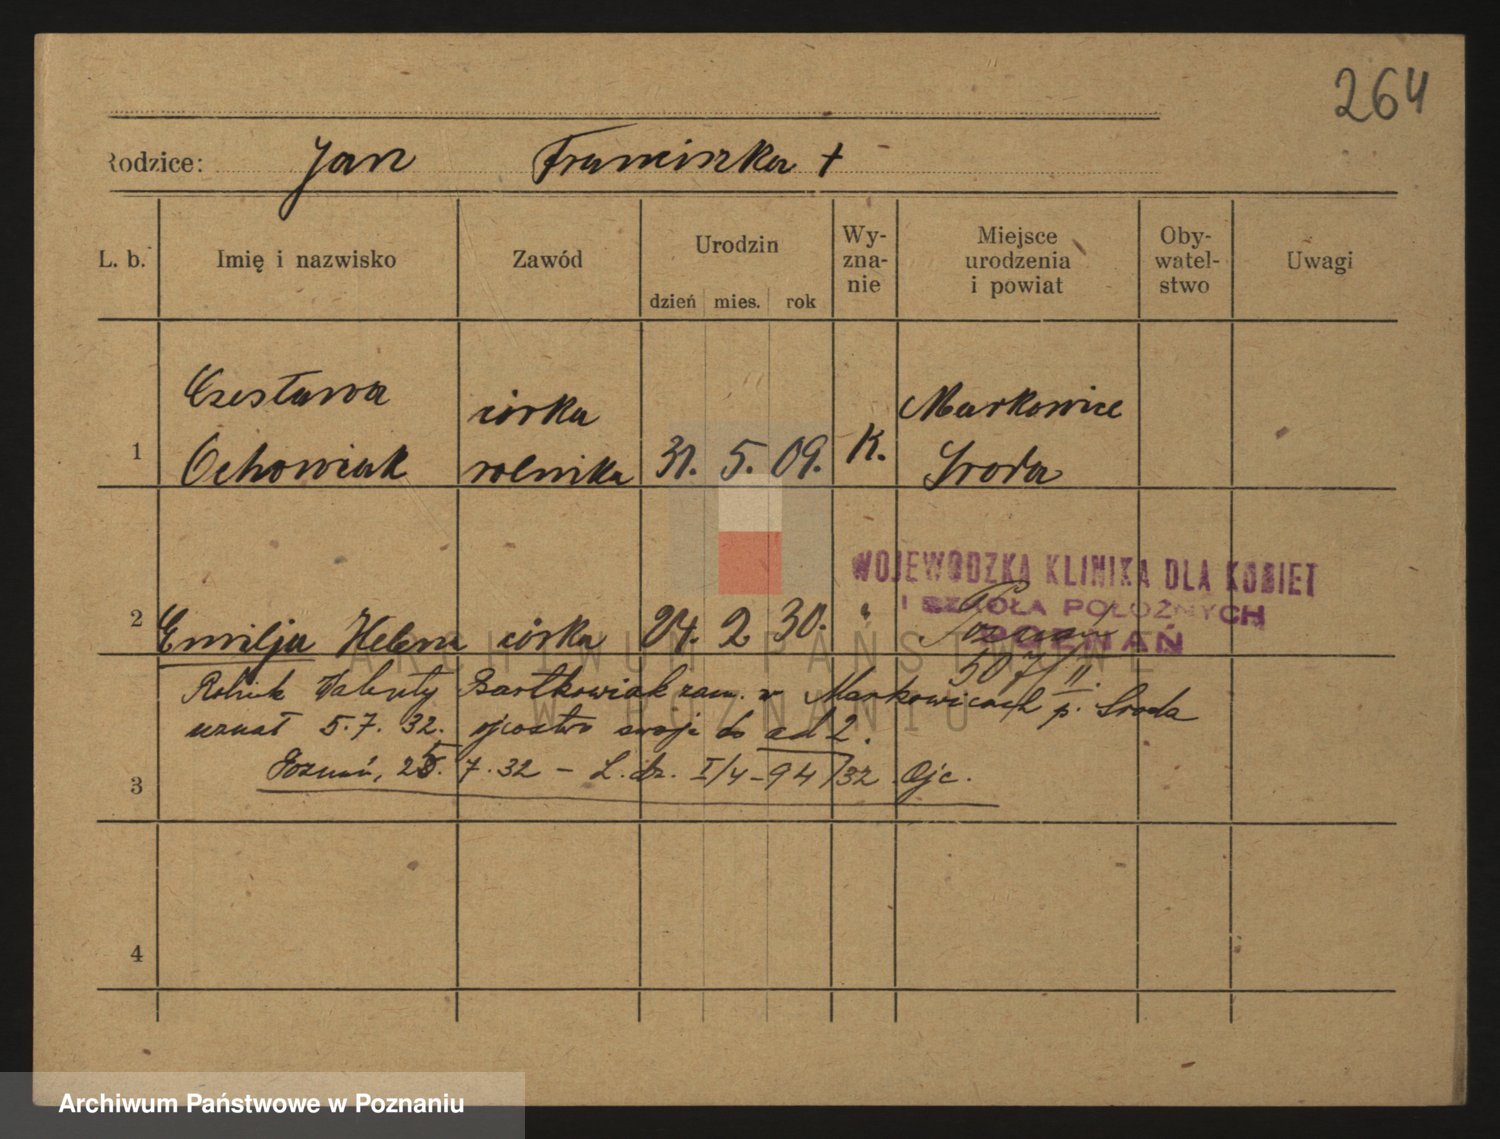 264
Rodzice: Jan Franciszka +
L. b. Imię i nazwisko Zawód Urodzin dzień mies. rok Wy-zna-nie Miejsce urodzenia i powiat Oby-watel-stwo Uwagi
Czesława córka Markowice
1 Ochowiak rolnika 31. 5. 09. K. Środa
WOJEWÓDZKA KLINIKA DLA KOBIET
I SZKOŁA POŁOŻNYCH
POZNAŃ
2 Emilja Helena córka 24. 2 30. " Poznań
507/II.
Rolnik Walenty Bartkowiak zam. w Markowicach p. Środa
uznał 5.7.32. ojcostwo swoje do ad 2.
3 Poznań, 25.7.32 – L. dz. I/4-94/32 Ojc.
4
ARCHIWUM PAŃSTWOWE
W POZNANIU
Archiwum Państwowe w Poznaniu